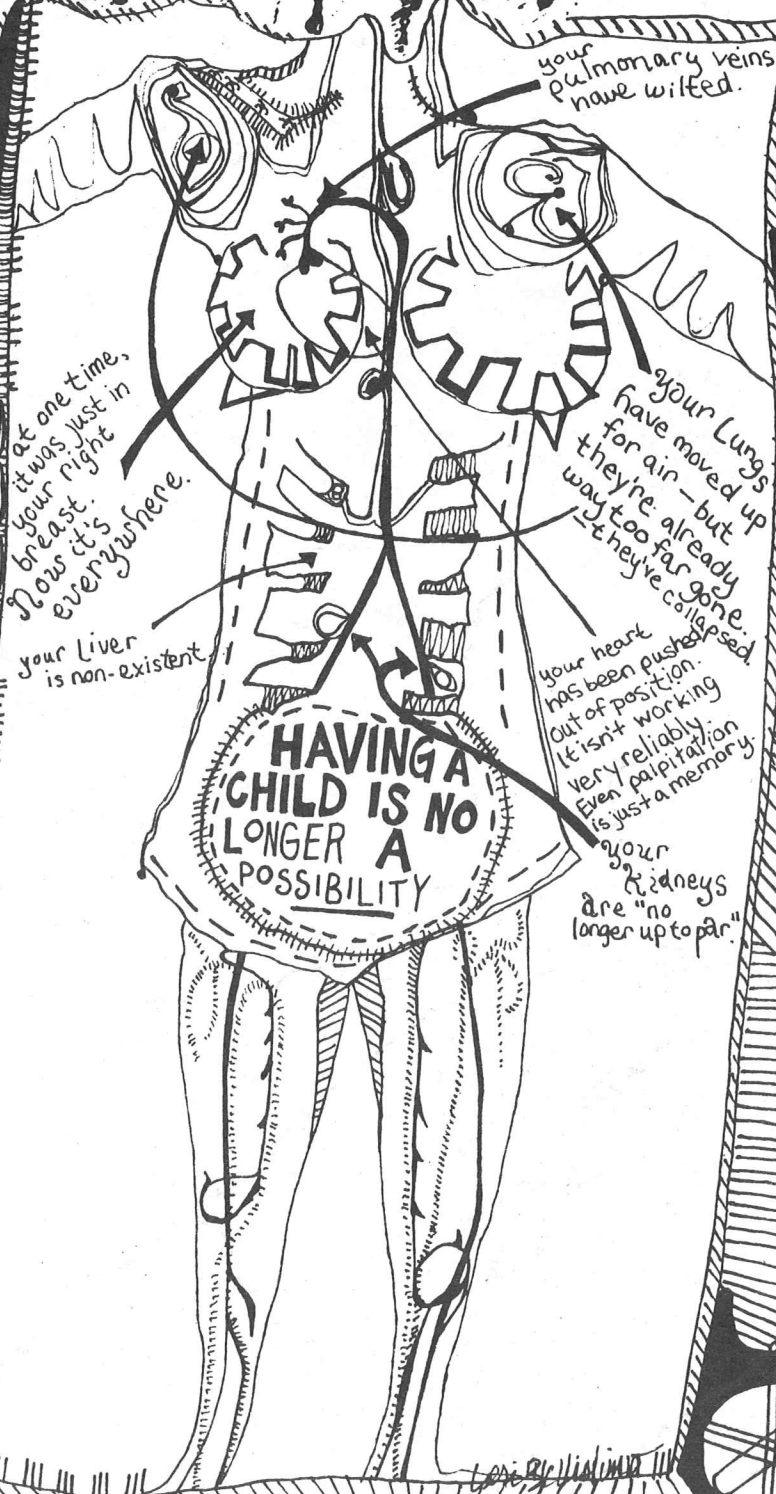 your
pulmonary veins
have wilted.
at one time,
it was just in
your right
breast.
Now it's
everywhere.
your Lungs
have moved up
for air – but
they're already
way too far gone.
– they've collapsed.
your Liver
is non-existent
your heart
has been pushed
out of position.
It isn't working
very reliably.
Even palpitation
is just a memory.
HAVING A
CHILD IS NO
LONGER A
POSSIBILITY
your
kidneys
are "no
longer up to par."